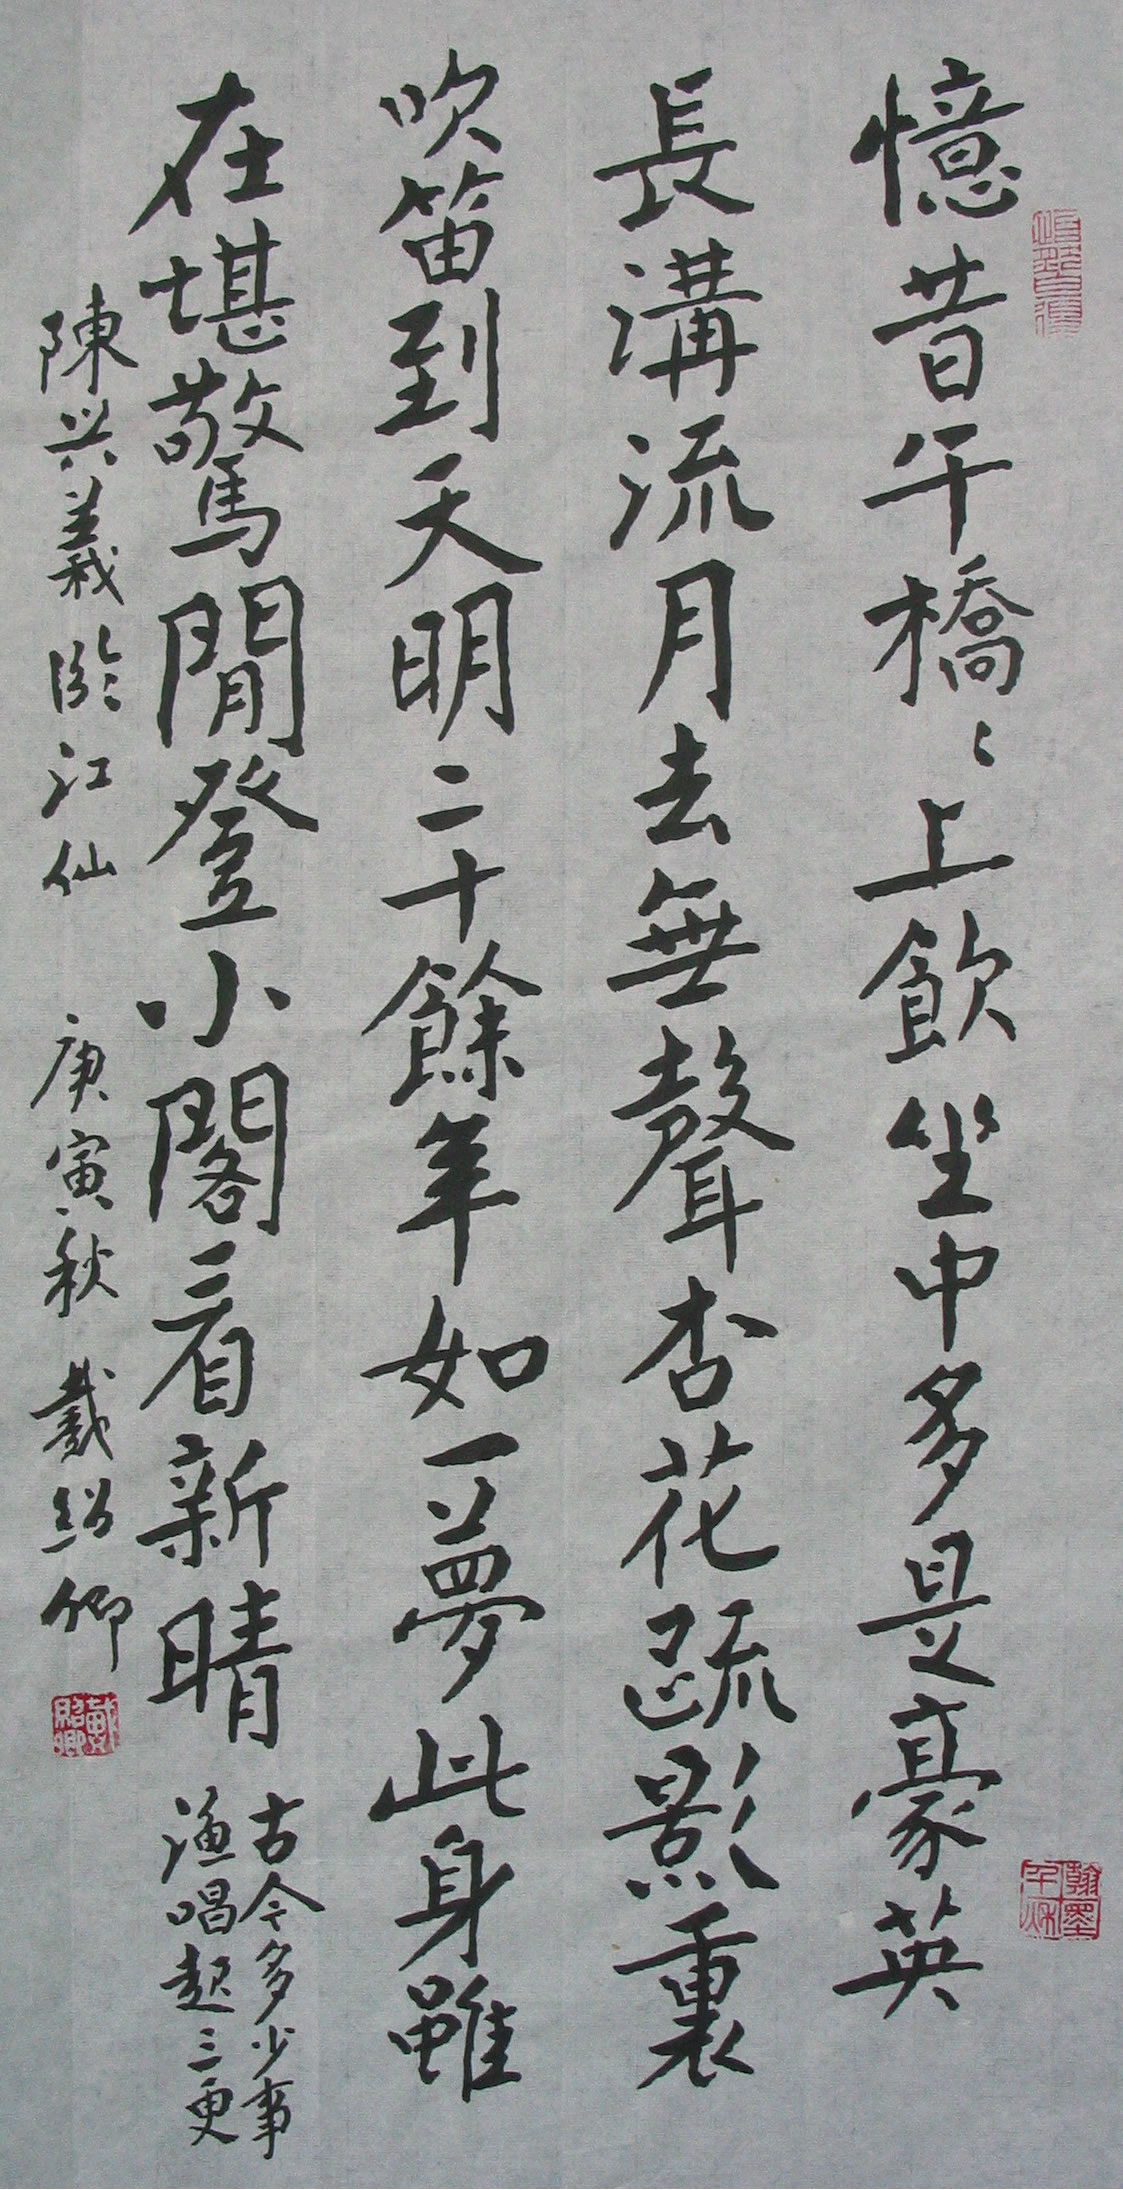 憶昔午橋〻上飲坐中多是豪英
長溝流月去無聲杏花疏影裏
吹笛到天明二十餘年如一夢此身雖
在堪驚閒登小閣看新晴
古今多少事
渔唱起三更
陳兴義臨江仙 庚寅秋 戴紹卿
翰墨千秋